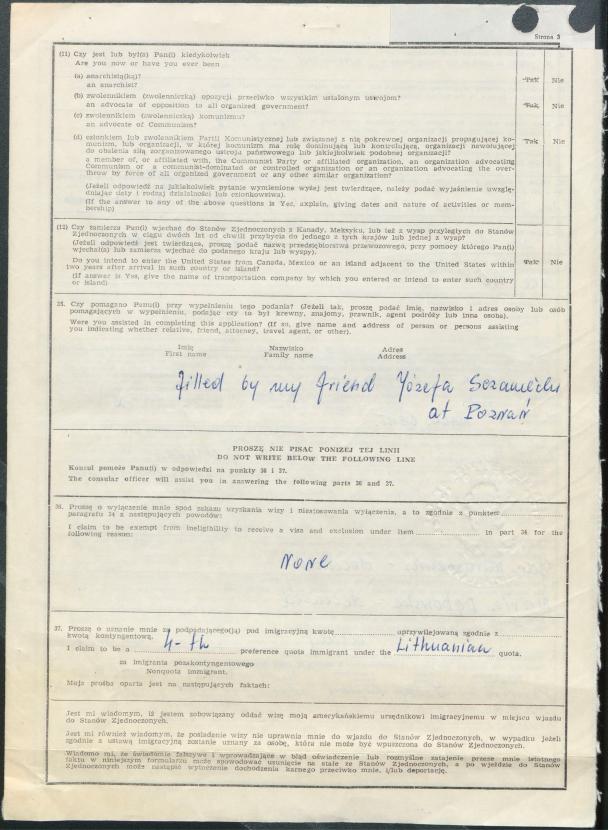 Strona 3
(11) Czy jest lub był(a) Pan(i) kiedykolwiek
Are you now or have you ever been
(a) anarchistą(ką)?
an anarchist?
Tak Nie
(b) zwolennikiem (zwolenniczką) opozycji przeciwko wszystkim ustalonym ustrojom?
an advocate of opposition to all organized government?
Tak Nie
(c) zwolennikiem (zwolenniczką) komunizmu?
an advocate of Communism?
(d) członkiem lub zwolennikiem Partii Komunistycznej lub związanej z nią pokrewnej organizacji propagującej ko-
munizm, lub organizacji, w której komunizm ma rolę dominującą lub kontrolującą, organizacji nawołującej
do obalenia siłą zorganizowanego ustroju państwowego lub jakiejkolwiek podobnej organizacji?
Tak Nie
a member of, or affiliated with, the Communist Party or affiliated organization, an organization advocating
Communism or a communist-dominated or controlled organization or an organization advocating the over-
throw by force of all organized government or any other similar organization?
(Jeżeli odpowiedź na jakiekolwiek pytanie wymienione wyżej jest twierdzące, należy podać wyjaśnienie uwzglę-
dniając daty i rodzaj działalności lub członkowstwa).
(If the answer to any of the above questions is Yes, explain, giving dates and nature of activities or mem-
bership)
(12) Czy zamierza Pan(i) wjechać do Stanów Zjednoczonych z Kanady, Meksyku, lub też z wysp przyległych do Stanów
Zjednoczonych w ciągu dwóch lat od chwili przybycia do jednego z tych krajów lub jednej z wysp?
(Jeżeli odpowiedź jest twierdząca, proszę podać nazwę przedsiębiorstwa przewozowego, przy pomocy którego Pan(i)
wjechał(a) lub zamierza wjechać do podanego kraju lub wyspy).
Do you intend to enter the United States from Canada, Mexico or an island adjacent to the United States within
two years after arrival in such country or island?
Tak Nie
(If answer is Yes, give the name of transportation company by which you entered or intend to enter such country
or island)
35. Czy pomagano Panu(i) przy wypełnieniu tego podania? (Jeżeli tak, proszę podać imię, nazwisko i adres osoby lub osób
pomagających w wypełnieniu, podając czy to był krewny, znajomy, prawnik, agent podróży lub inna osoba).
Were you assisted in completing this application? (If so, give name and address of person or persons assisting
you indicating whether relative, friend, attorney, travel agent, or other).
Imię Nazwisko Adres
First name Family name Address
filled by my friend Józefa
at Poznań
PROSZĘ NIE PISAĆ PONIŻEJ TEJ LINII
DO NOT WRITE BELOW THE FOLLOWING LINE
Konsul pomoże Panu(i) w odpowiedzi na punkty 36 i 37.
The consular officer will assist you in answering the following parts 36 and 37.
36. Proszę o wyłączenie mnie spod zakazu uzyskania wizy i niestosowania wyłączenia, a to zgodnie z punktem
paragrafu 34 z następujących powodów:
I claim to be exempt from ineligibility to receive a visa and exclusion under item in part 34 for the
following reason:
None
37. Proszę o uznanie mnie za podpadającego(ją) pod imigracyjną kwotę uprzywilejowaną zgodnie z
kwotą kontyngentową.
I claim to be a 4-th preference quota immigrant under the Lithuanian quota.
za imigranta pozakontyngentowego
Nonquota immigrant.
Moja prośba oparta jest na następujących faktach:
Jest mi wiadomym, iż jestem zobowiązany oddać wizę moją amerykańskiemu urzędnikowi imigracyjnemu w miejscu wjazdu
do Stanów Zjednoczonych.
Jest mi również wiadomym, że posiadenie wizy nie uprawnia mnie do wjazdu do Stanów Zjednoczonych, w wypadku jeżeli
zgodnie z ustawą imigracyjną zostanie uznany za osobę, która nie może być wpuszczona do Stanów Zjednoczonych.
Wiadomo mi, że świadomie fałszywe i wprowadzające w błąd oświadczenie lub rozmyślne zatajenie przeze mnie istotnego
faktu w niniejszym formularzu może spowodować usunięcie na stałe ze Stanów Zjednoczonych, a po wjeździe do Stanów
Zjednoczonych może nastąpić wytoczenie dochodzenia karnego przeciwko mnie, i/lub deportację.